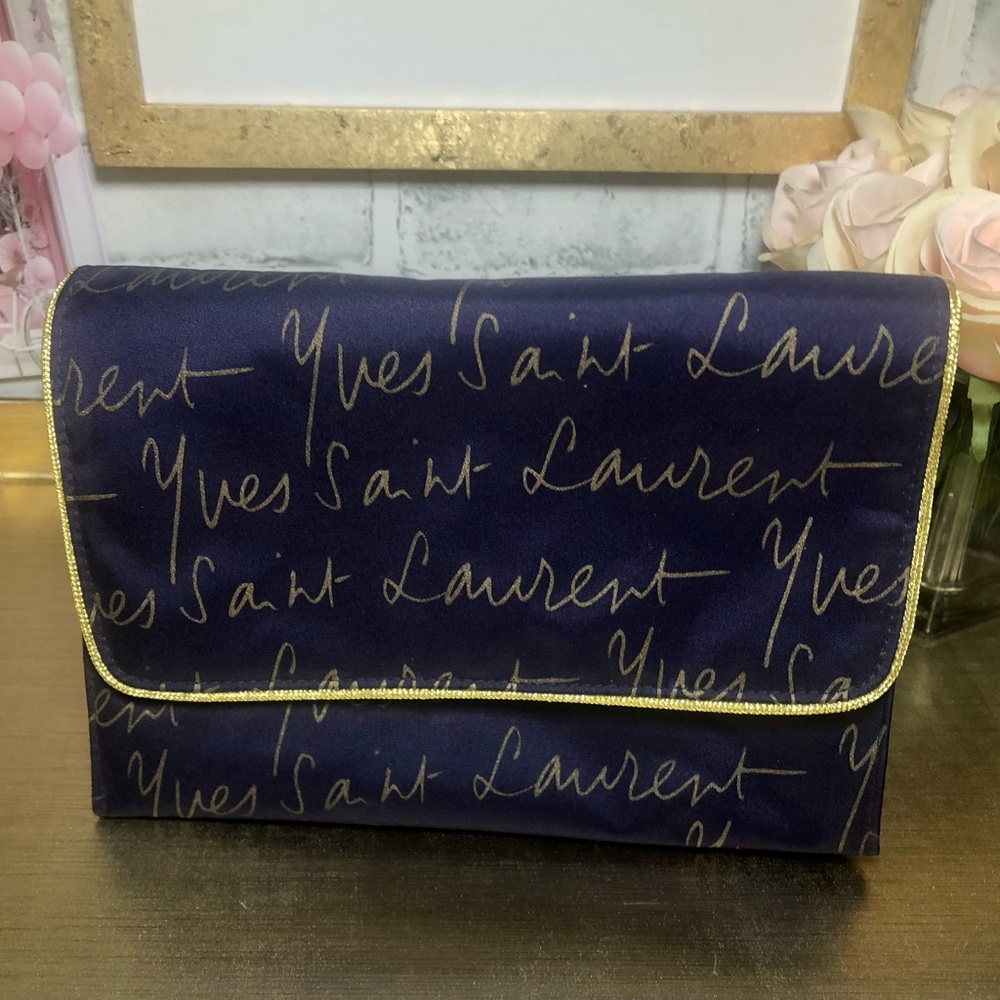 Laurent
rent Yves Saint Laure
Yves Saint Laurent
ves Saint Laurent Yves
ent Laurent Yves Sa
Yves Saint Laurent Y
Y